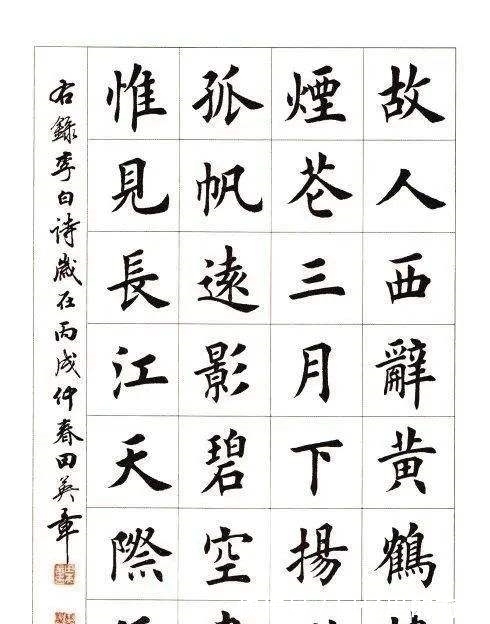 故人西辭黄鶴
煙花三月下揚
孤帆遠影碧空
惟見長江天際
右錄李白诗歲在丙戌仲春田英章